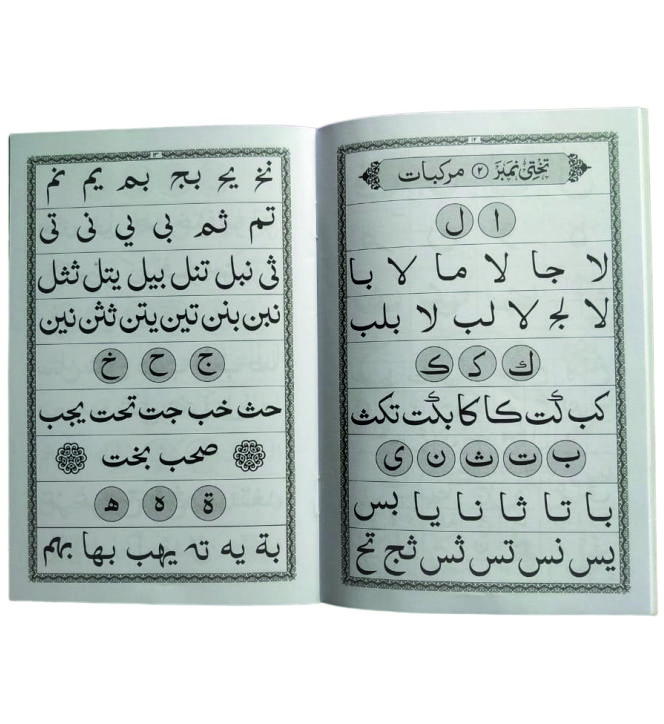 ۱۲
تختی نمبر ۲ مرکبات
ا ل
لا جا لا ما لا با
لا لج لا لب لا بلب
ك ک ڪ
کب گت کا کا بگت تکث
ب ت ث ن ی
با تا ثا نا یا بس
یس نس تس ثس ثج تح
۱۳
نخ یح بج بم یم نم
تم ثم بی یي نی تی
ثی نبل تنل بیل یتل ثثل
نبن بنن تین یتن ثثن نین
ج ح خ
حث خب جت تحت یجب
صحب بخت
ة ه ھ
بة یه بها